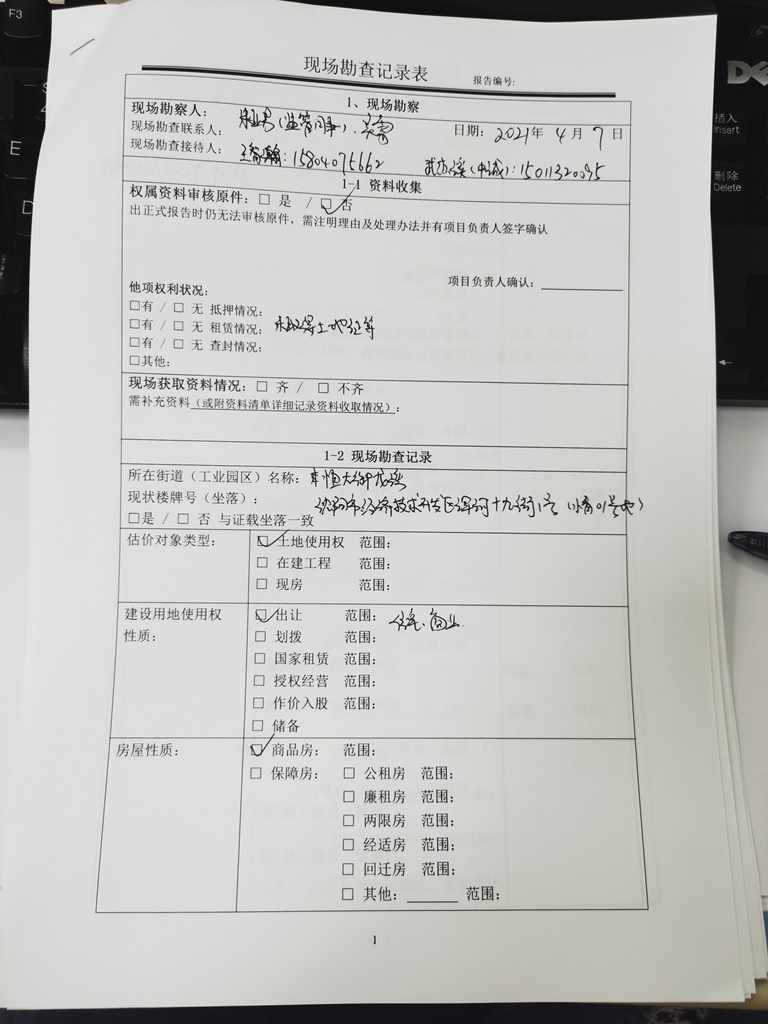 F3
E
D
DELL
插入
Insert
删除
Delete
现场勘查记录表
报告编号:
1、现场勘察
现场勘察人:
现场勘查联系人: 日期: 2021年 4 月 7 日
现场勘查接待人: 15804075662 (中诚): 15011320095
1-1 资料收集
权属资料审核原件: □ 是 / □ 否
出正式报告时仍无法审核原件，需注明理由及处理办法并有项目负责人签字确认
项目负责人确认:
他项权利状况:
□有 / □ 无 抵押情况:
□有 / □ 无 租赁情况: 未取得土地证等
□有 / □ 无 查封情况:
□其他:
现场获取资料情况: □ 齐 / □ 不齐
需补充资料（或附资料清单详细记录资料收取情况）:
1-2 现场勘查记录
所在街道（工业园区）名称:
现状楼牌号（坐落）: 沈阳市经济技术开发区浑河十九街1号
□是 / □ 否 与证载坐落一致
估价对象类型: □ 土地使用权 范围:
□ 在建工程 范围:
□ 现房 范围:
建设用地使用权 □ 出让 范围: 住宅、商业
性质: □ 划拨 范围:
□ 国家租赁 范围:
□ 授权经营 范围:
□ 作价入股 范围:
□ 储备
房屋性质: □ 商品房: 范围:
□ 保障房: □ 公租房 范围:
□ 廉租房 范围:
□ 两限房 范围:
□ 经适房 范围:
□ 回迁房 范围:
□ 其他: 范围:
1